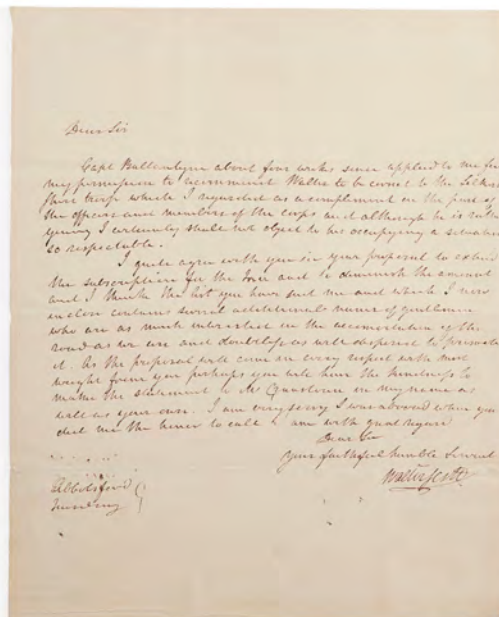 Dear Sir
Capt Ballantyne about four weeks since applied to me for
my permission to recommend Walter to be cornet to the Selkirk
shire troop which I regarded as a compliment on the part of
the officers and members of the corps and although he is rather
young I certainly shall not object to his occupying a situation
so respectable.
I quite agree with you in your proposal to extend
the subscription for the and to diminish the amount
and I think the list you have sent me and which I now
enclose contains several additional names of gentlemen
who are as much interested in the accomodation of the
road as we are and doubtless as well disposed to promote
it. As the proposal will come in every respect with more
weight from you perhaps you will have the kindness to
make the statement to Mr in my name as
well as your own. I am very sorry I was abroad when you
did me the honor to call & am with great regard
Dear Sir
your faithful humble Servant
Walter Scott
Abbotsford